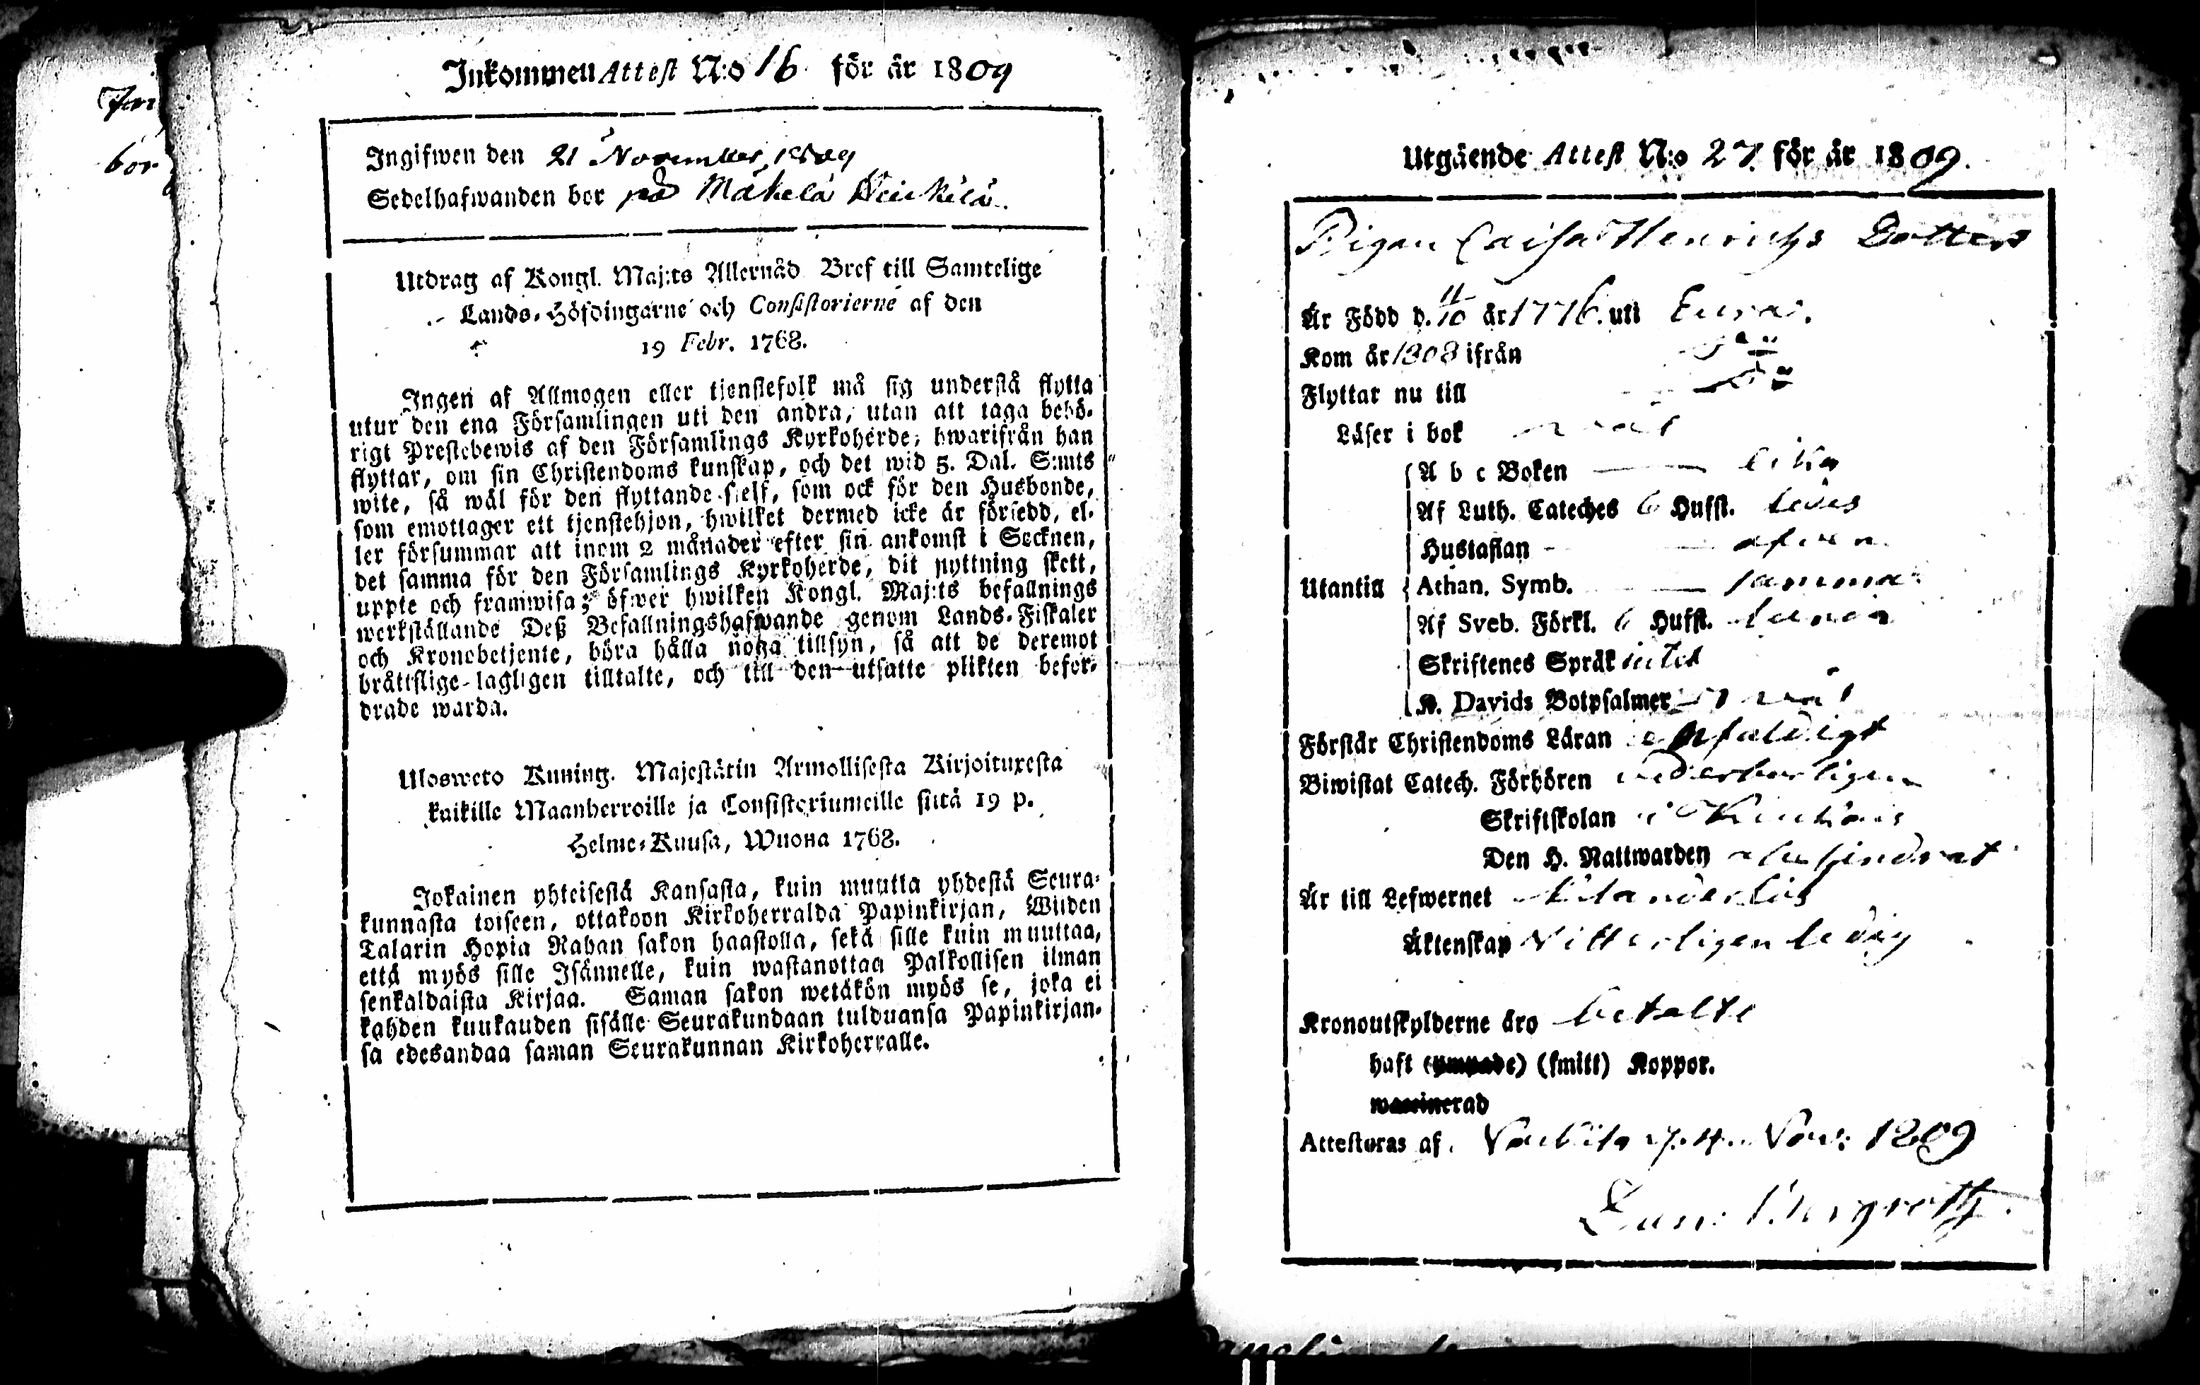 Inkommen Attest N:o 16 för år 1809
Ingifwen den 21 November 1809
Sedelhafwanden bor på Mäkelä
Utdrag af Kongl. Maj:ts Allernåd. Bref till Samtelige
Lands-Höfdingarne och Consistorierne af den
19 Febr. 1768.
Ingen af Allmogen eller tjenstefolk må sig understå flytta
utur den ena Församlingen uti den andra, utan att taga behö-
rigt Prestebewis af den Församlings Kyrkoherde, hwarifrån han
flyttar, om sin Christendoms kunskap, och det wid 5. Dal. S:mts
wite, så wäl för den flyttande sjelf, som ock för den Husbonde,
som emottager ett tjenstehjon, hwilket dermed icke är försedd, el-
ler försummar att inom 2 månader efter sin ankomst i Socknen,
det samma för den Församlings Kyrkoherde, dit flyttning skett,
uppte och framwisa; öfwer hwilken Kongl. Maj:ts befallnings
werkställande Deß Befallningshafwande genom Lands-Fiskaler
och Kronobetjente, böra hålla noga tillsyn, så att de deremot
bråttslige lagligen tilltalte, och till den utsatte plikten befor-
drade warda.
Ulosweto Kuning. Majestätin Armollisesta Kirjoituxesta
kaikille Maanherroille ja Consistoriumeille siitä 19 p.
Helme-Kuusa, Wuona 1768.
Jokainen yhteisestä Kansasta, kuin muutta yhdestä Seura-
kunnasta toiseen, ottakoon Kirkoherralda Papinkirjan, Wiiden
Talarin Hopia Rahan sakon haastolla, sekä sille kuin muuttaa,
että myös sille Isännelle, kuin wastanottaa Palkollisen ilman
senkaldaista Kirjaa. Saman sakon wetäkön myös se, joka ei
kahden kuukauden sisälle Seurakundaan tulduansa Papinkirjan-
sa edesandaa saman Seurakunnan Kirkoherralle.
Utgående Attest N:o 27 för år 1809.
Pigan Caisa Henrichs Dotter
Är Född d. 11/10 år 1776. uti Eura.
Kom år 1808 ifrån
Flyttar nu till
Läser i bok
A b c Boken
Af Luth. Cateches 6 Hufst.
Hustaflan
Utantill Athan. Symb. samma
Af Sveb. Förkl. 6 Hufst.
Skriftenes Språk intet
K. Davids Botpsalmer
Förstår Christendoms Läran enfaldigt
Biwistat Catech. Förhören wederbörligen
Skriftskolan i
Den H. Nattwarden obehindrat
Är till Lefwernet
Äktenskap Witterligen ledig
Kronoutskylderne äro betalte
haft (ympade) (smitt) Koppor.
waccinerad
Attesteras af. d. 4. Nov: 1809